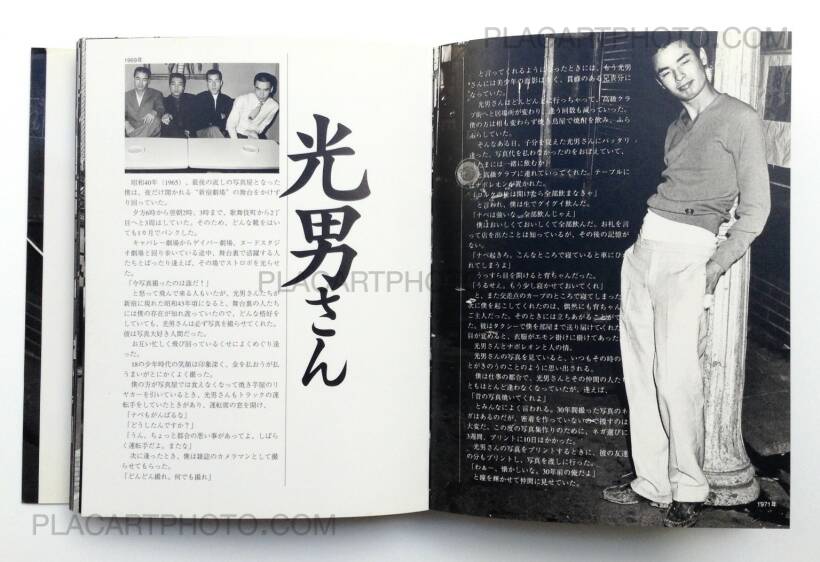 PLACARTPHOTO.COM
1969年
光男さん
昭和40年（1965）、最後の流しの写真屋となった
僕は、夜だけ開かれる“新宿劇場”の舞台をかけず
り回っていた。
夕方6時から翌朝2時、3時まで、歌舞伎町から2丁
目へと3周はしていた。そのため、どんな靴をはい
ても1ヶ月でパンクした。
キャバレー劇場からゲイバー劇場、ヌードスタジ
オ劇場と回り歩いている途中、舞台裏で活躍する人
たちとばったり逢えば、その場でストロボを光らせ
た。
「今写真撮ったのは誰だ！」
と怒って飛んで来る人もいたが、光男さんたちが
新宿に現れた昭和43年頃になると、舞台裏の人たち
には僕の存在が知れ渡っていたので、どんな格好を
していても、光男さんは必ず写真を撮らせてくれた。
彼は写真大好き人間だった。
お互い忙しく飛び回っているくせによくめぐり逢
った。
18の少年時代の笑顔は印象深く、金を払おうが払
うまいがとにかくよく撮った。
僕の方が写真屋では食えなくなって焼き芋屋のリ
ヤカーを引いているとき、光男さんもトラックの運
転手をしていたときがあり、運転席の窓を開け、
「ナベもがんばるな」
「どうしたんですか？」
「うん、ちょっと都合の悪い事があってよ、しばら
く運転手だよ。またな」
次に逢ったとき、僕は雑誌のカメラマンとして撮
らせてもらった。
「どんどん撮れ、何でも撮れ」
と言ってくれるようになったときには、もう光男
さんには美少年の面影はなく、貫禄のある兄貴分に
なっていた。
光男さんはどんどん上に行っちゃって、高級クラ
ブ街へと居場所が変わり、逢う回数も減っていった。
僕の方は相も変わらず焼き鳥屋で焼酎を飲み、ふら
ふらしていた。
そんなある日、子分を従えた光男さんにバッタリ
逢った。写真代を払わなかったのをおぼえていて、
「たまには一緒に飲むか」
と高級クラブに連れていってくれた。テーブルに
はナポレオンが置かれた。
と言われ、僕は生でグイグイ飲んだ。
「ナベは強いな、全部飲んじゃえ」
僕はおいしくておいしくて全部飲んだ。お礼を言
って店を出たことは知っているが、その後の記憶が
ない。
「ナベ起きろ。こんなところで寝ていると車にひか
れてしまうよ」
うっすら目を開けると育ちゃんだった。
「うるせえ、もう少し寝かせておいてくれ」
と、また交差点のカーブのところで寝てしまった。
次に僕を起こしてくれたのは、偶然にも育ちゃんの
ご主人だった。そのときには立ちあがることができ
た。彼はタクシーで僕を部屋まで送り届けてくれた。
目が覚めると、衣服がエモン掛けに掛けてあった。
光男さんとナポレオンと人の情。
光男さんの写真を見ていると、いつもその時のこ
とがきのうのことのように思い出される。
僕は仕事の都合で、光男さんとその仲間の人た
ちともほとんど逢わなくなっていたが、逢えば、
「昔の写真焼いてくれよ」
とみんなによく言われる。30年間撮った写真のネ
ガはあるのだが、密着を作っていないので捜すのは
大変だ。この度の写真集作りのために、ネガ選びに
3週間、プリントに10日はかかった。
光男さんの写真をプリントするときに、彼の友達
の分もプリントし、写真を渡しに行った。
「わぁー、懐かしいな。30年前の俺だよ」
と瞳を輝かせて仲間に見せていた。
1971年
PLACARTPHOTO.COM
PLACARTPHOTO.COM
PLACARTPHOTO.COM